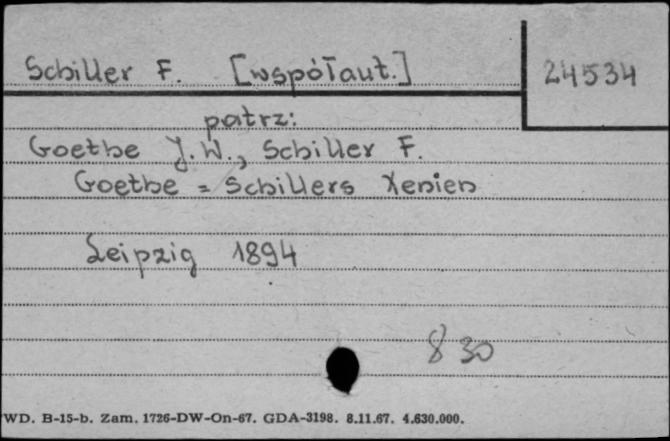 Schiller F. [współaut.]
24534
patrz:
Goethe J. W., Schiller F.
Goethe = Schillers Xenien
Leipzig 1894
830
WD. B-15-b. Zam. 1726-DW-On-67. GDA-3198. 8.11.67. 4.630.000.